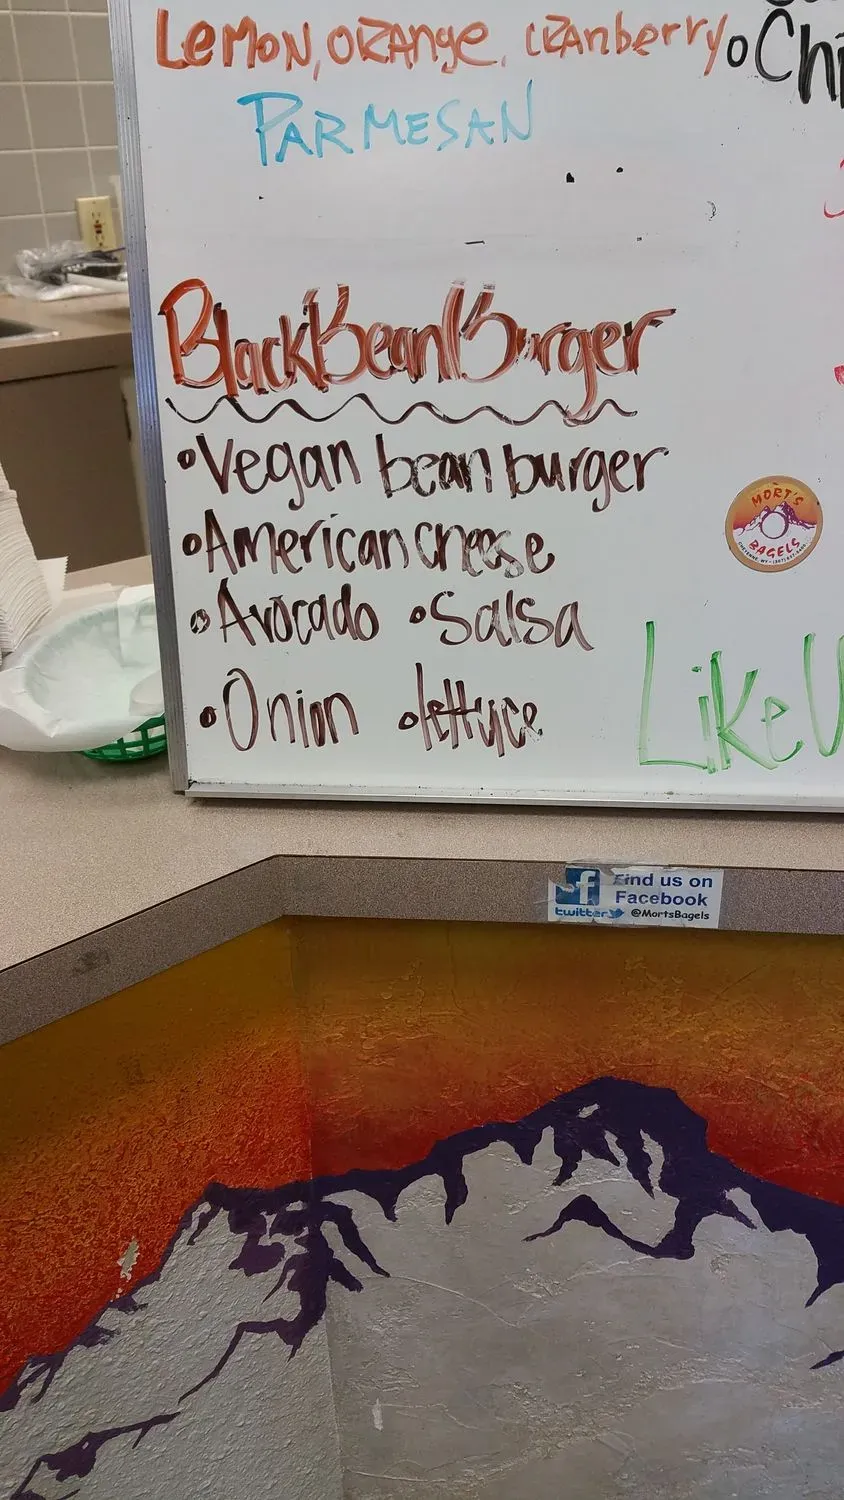 LEMON, ORANGE, CRANBERRY
PARMESAN
Black Bean Burger
•Vegan bean burger
•American cheese
•Avocado •Salsa
•Onion •lettuce
•Chi
MORT'S
BAGELS
Like U
Find us on
Facebook
twitter @MortsBagels